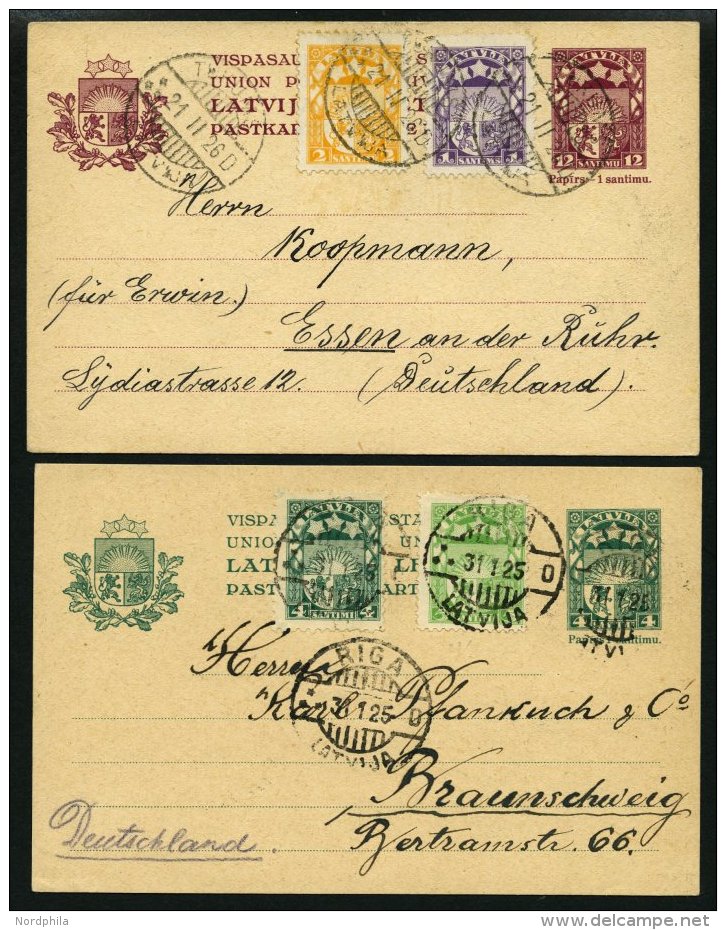 VISPASAU
UNION P
LATVIJ
PASTKAR
LATVIJA
2 SANTIMI 2
1 SANTIMS 1
LATVIJA
12 SANTIMU 12
Papīrs 1 santimu.
21 II 26 D
LATVIJA
Herrn
Koopmann,
(für Erwin.)
Essen an der Ruhr.
Lydiastrasse 12. (Deutschland).
VISPA STA
UNIO
LAT
PAST ART
4 SANTIMI 4
LATVIJA
4 4
Pap santimu.
RIGA
31 1 25 D
LATVIJA
31.1.25
LATVI
RIGA
31 1 25 D
LATVIJA
Herren
Karl Pfankuch & Co
Braunschweig
Deutschland.
Bertramstr. 66.
Nordphila
delcampe.net